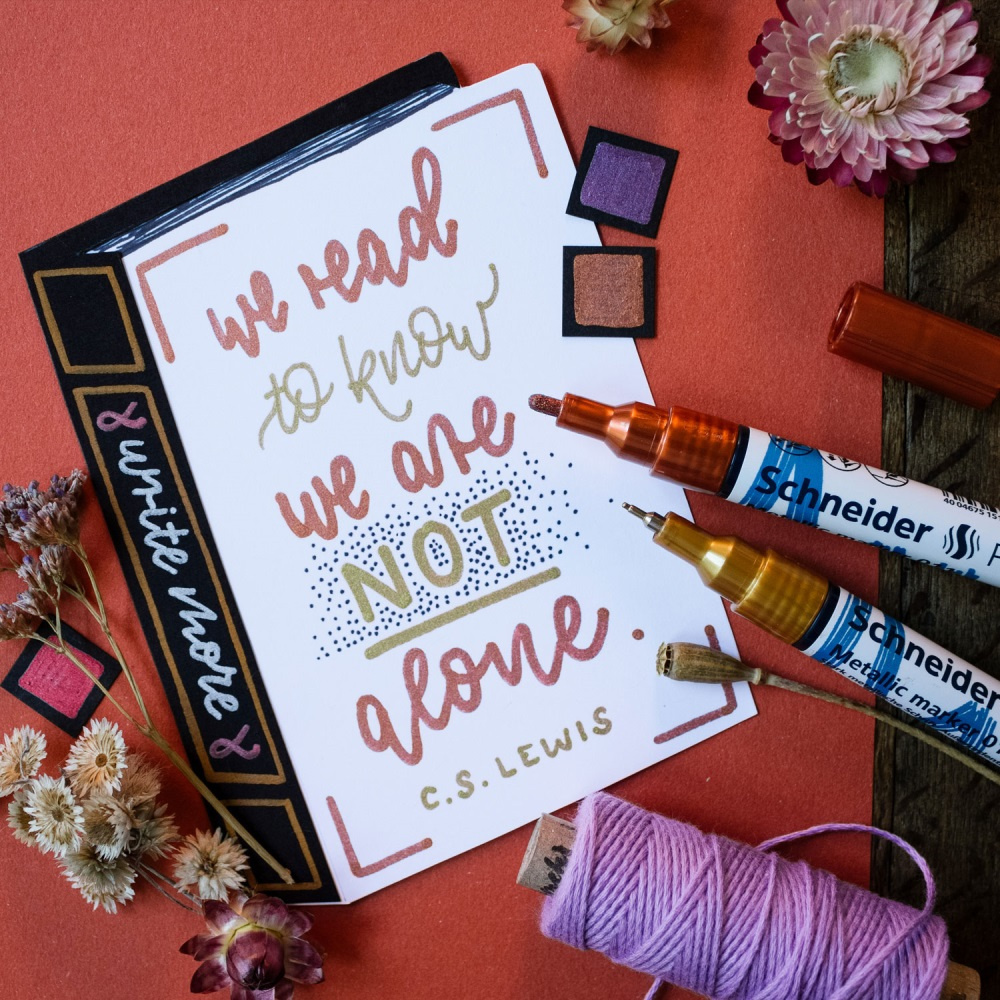 we read
to know
we are
NOT
alone.
C.S. LEWIS
write more
Schneider
Schneider
Metallic marker